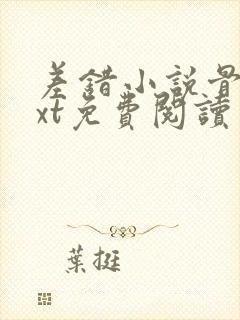 差錯小說骨
xt免費閱讀
葉挺